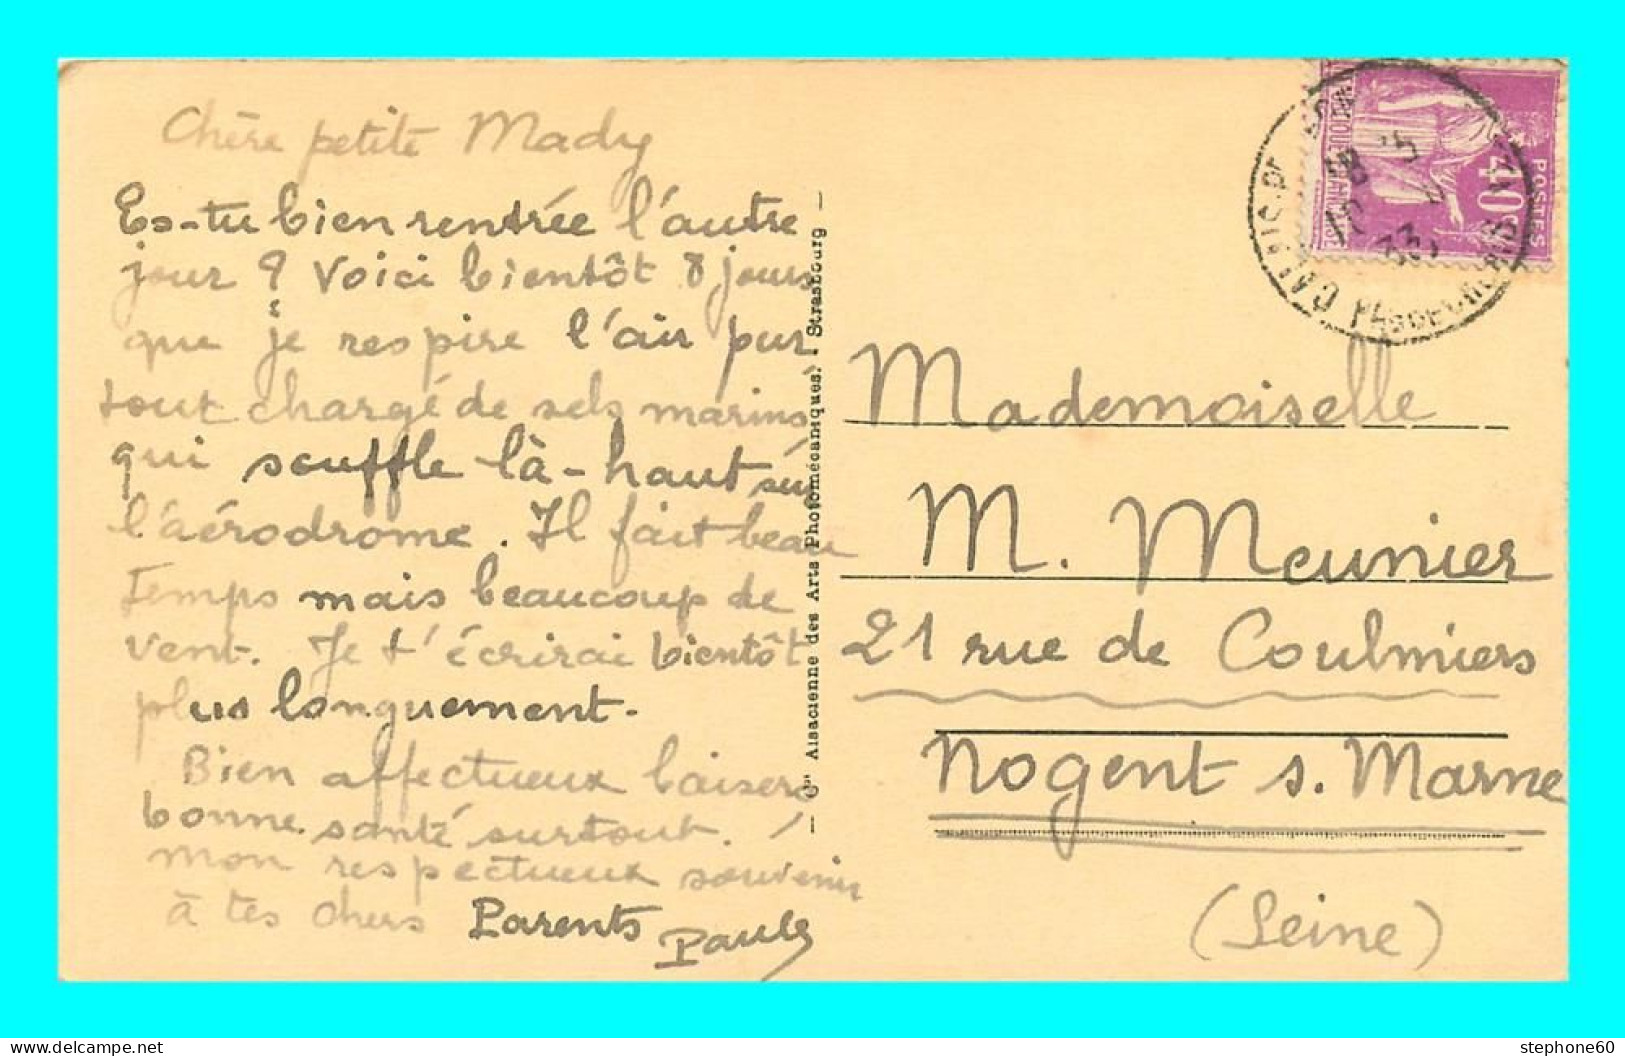 Chère petite Mady
Es-tu bien rentrée l'autre
jour ? Voici bientôt 8 jours
que je respire l'air pur
tout chargé de sels marins
qui souffle là-haut sur
l'aérodrome. Il fait beau
temps mais beaucoup de
vent. Je t'écrirai bientôt
plus longuement.
Bien affectueux baisers
bonne santé surtout.
mon respectueux souvenir
à tes chers Parents
Paule
— Cie Alsacienne des Arts Photomécaniques, Strasbourg —
POSTES
40c
33
CALAIS
Mademoiselle
M. Meunier
21 rue de Coulmiers
Nogent s. Marne
(Seine)
stephone60